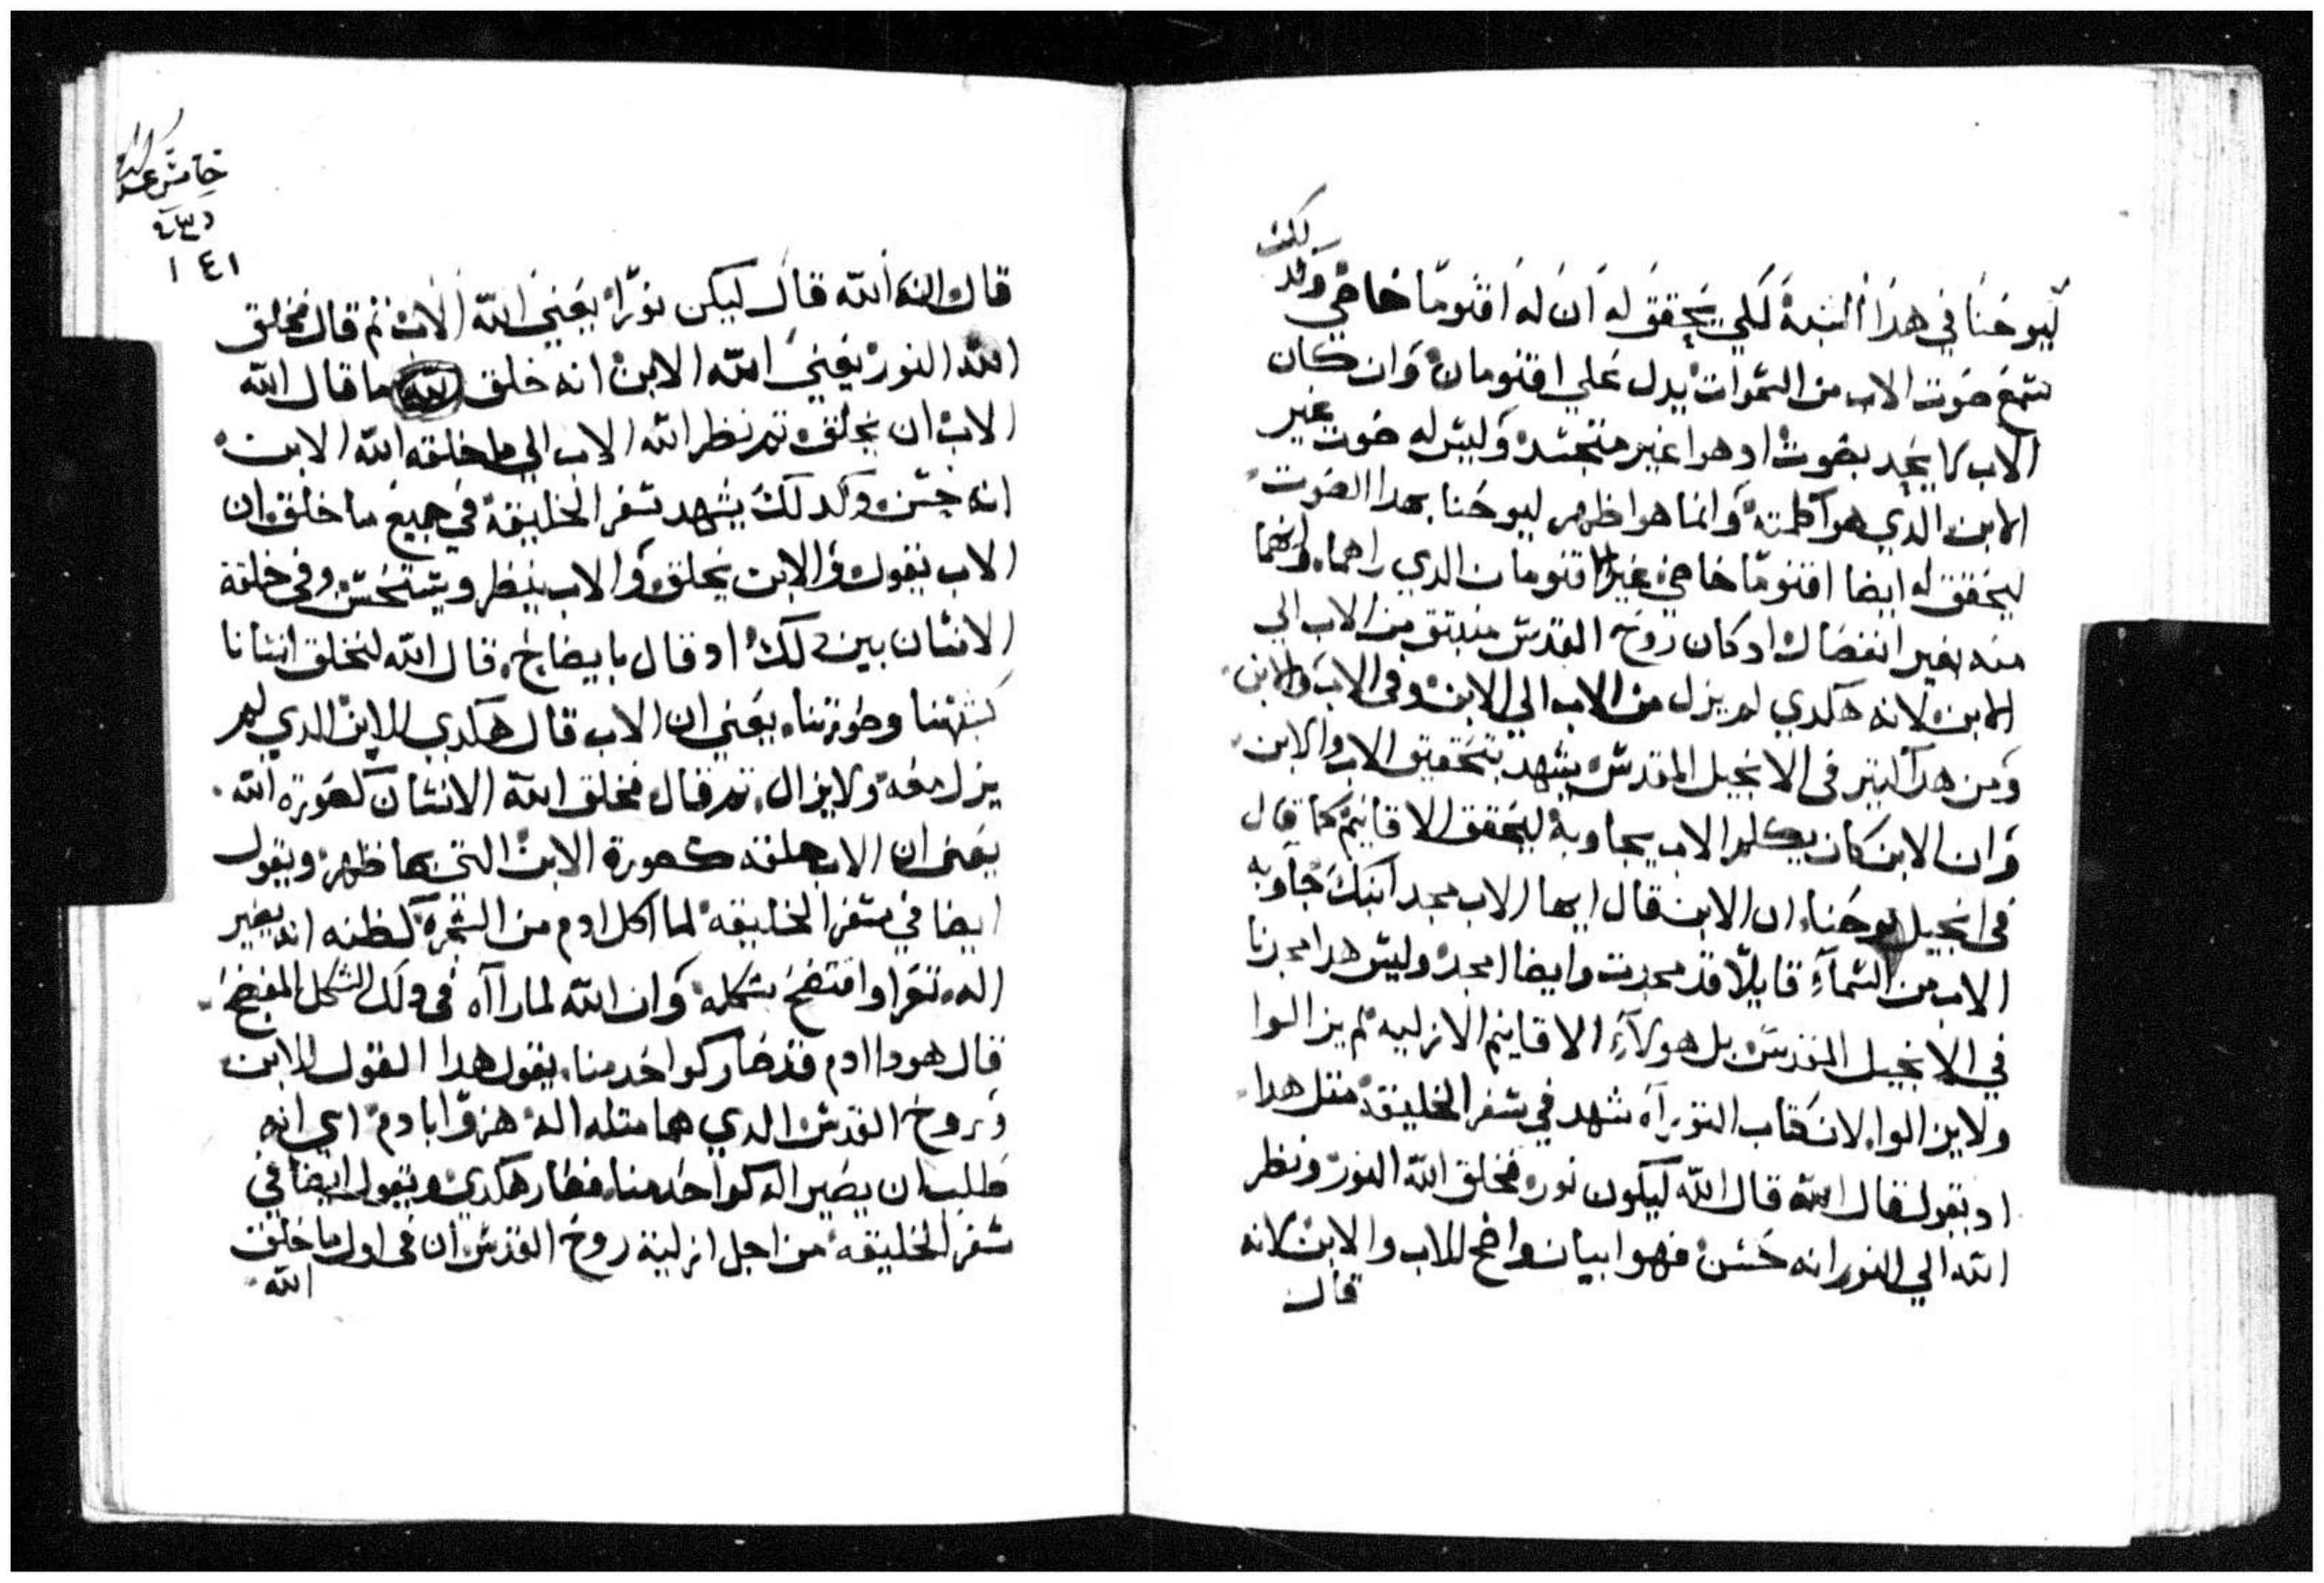 ليوحنا في هدا الشبه لكي يحقق له ان له اقنوما خاص وكدلك
سمع صوت الاب من السموات يدل علي اقنومان وان كان
الاب لا يحد بصوت اد هوا غير متجسد وليس له صوت غير
الابن الدي هوا كلمته وانما هوا ظهر ليوحنا بهدا الصوت
ليحقق له ايضا اقنوما خاص غير الاقنومان الدي راهما وانهما
منه بغير انفصال اد كان روح القدس منبتق من الاب الي
الابن لانه هكدي لم يزل من الاب الي الابن وفي الاب والابن
ومن هدا كتير في الانجيل المقدس يشهد بتحقيق الاب والابن
وان الابن كان يكلم الاب يجاوبه ليحقق الاقانيم كما قال
في انجيل يوحنا ان الابن قال ايها الاب مجد ابنك جاوبه
الاب من السماء قايلا قد مجدت وايضا امجد وليس هدا محرنا
في الانجيل المقدس بل هولاء الاقانيم الازليه لم يزالوا
ولايزالوا لان كتاب التوراه شهد في سفر الخليقه متل هدا
اد يقول قال الله قال الله ليكون نور فخلق الله النور ونظر
الله الي النور انه حسن فهوا بيان واضح للاب والابن لانه
قال
خامس عشر
١٤١
قال انه الله قال ليكن نورا يعني الله الاب تم قال فخلق
الله النور يعني الله الابن انه خلق ما قال الله
الاب ان يخلق تم نظر الله الاب الي ما خلقه الله الابن
انه حسن وكدلك يشهد سفر الخليقة في جميع ما خلق ان
الاب يقول والابن يخلق والاب ينظر ويستحسن وفي خلقة
الانسان بين دلك اد قال بايضاح قال الله لنخلق انسانا
كشبهنا وصورتنا يعني ان الاب قال هكدي للابن الدي لم
يزل معه ولايزال تم قال فخلق الله الانسان كصورة الله
يعني ان الاب خلقه كصورة الابن التي بها ظهر ويقول
ايضا في سفر الخليقه لما اكل ادم من الشجرة لظنه انه يصير
اله تعرا وافتضح بشكله وان الله لما رااه في دلك الشكل المفضح
قال هودا ادم قد صار كواحد منا يقول هدا القول للابن
وروح القدس الدي هما متله اله هزوا بادم اي انه
طلب ان يصير اله كواحد منا فصار هكدي ويقول ايضا في
سفر الخليقه من اجل ازلية روح القدس ان في اول ما خلق
الله